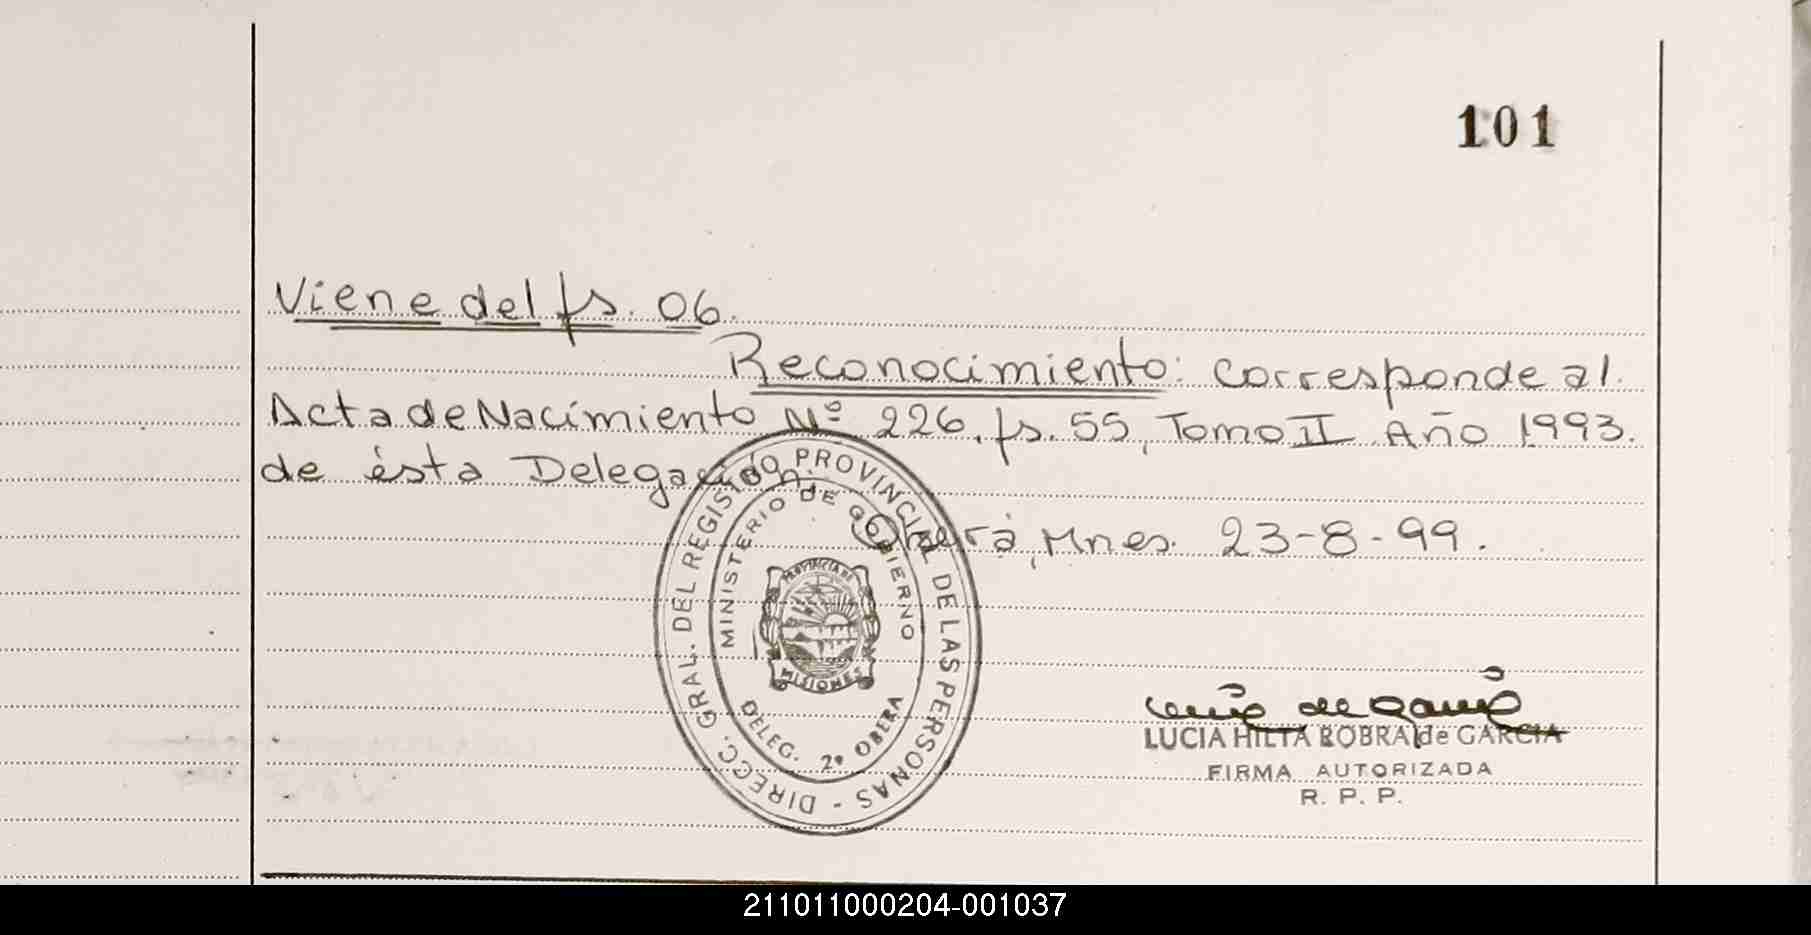 101
Viene del fs. 06.
Reconocimiento: Corresponde al
Acta de Nacimiento Nº 226, fs. 55, Tomo II Año 1993.
de ésta Delegación.
Oberá, Mnes. 23-8-99.
DIRECC. GRAL. DEL REGISTRO PROVINCIAL DE LAS PERSONAS -
MINISTERIO DE GOBIERNO
PROVINCIA DE
MISIONES
DELEG. 2º OBERA
LUCIA HILTA ROBRA de GARCIA
FIRMA AUTORIZADA
R. P. P.
211011000204-001037